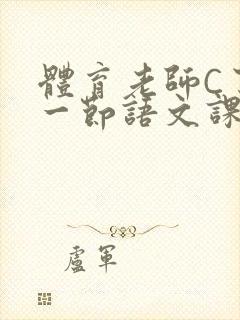 體育老師C
一節語文課
盧軍